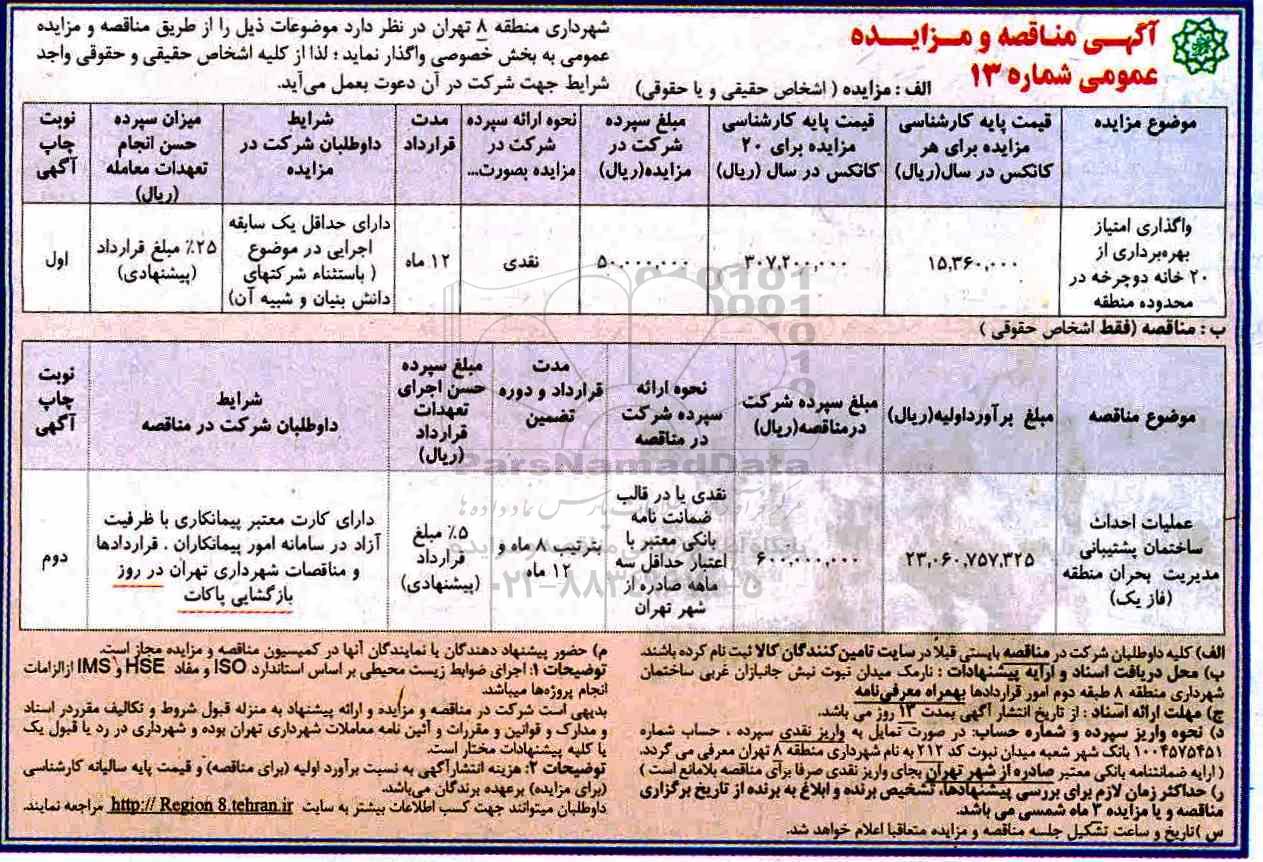 آگهی مناقصه و مزایده
عمومی شماره ۱۳
شهرداری منطقه ۸ تهران در نظر دارد موضوعات ذیل را از طریق مناقصه و مزایده
عمومی به بخش خصوصی واگذار نماید ؛ لذا از کلیه اشخاص حقیقی و حقوقی واجد
شرایط جهت شرکت در آن دعوت بعمل می‌آید.
الف : مزایده ( اشخاص حقیقی و یا حقوقی)
موضوع مزایده
قیمت پایه کارشناسی
مزایده برای هر
کانکس در سال(ریال)
قیمت پایه کارشناسی
مزایده برای ۲۰
کانکس در سال (ریال)
مبلغ سپرده
شرکت در
مزایده(ریال)
نحوه ارائه سپرده
شرکت در
مزایده بصورت...
مدت
قرارداد
شرایط
داوطلبان شرکت در
مزایده
میزان سپرده
حسن انجام
تعهدات معامله
(ریال)
نوبت
چاپ
آگهی
واگذاری امتیاز
بهره‌برداری از
۲۰ خانه دوچرخه در
محدوده منطقه
۱۵,۳۶۰,۰۰۰
۳۰۷,۲۰۰,۰۰۰
۵۰,۰۰۰,۰۰۰
نقدی
۱۲ ماه
دارای حداقل یک سابقه
اجرایی در موضوع
( باستثناء شرکتهای
دانش بنیان و شبیه آن)
۲۵٪ مبلغ قرارداد
(پیشنهادی)
اول
ب : مناقصه (فقط اشخاص حقوقی )
موضوع مناقصه
مبلغ برآورداولیه(ریال)
مبلغ سپرده شرکت
درمناقصه(ریال)
نحوه ارائه
سپرده شرکت
در مناقصه
مدت
قرارداد و دوره
تضمین
مبلغ سپرده
حسن اجرای
تعهدات
قرارداد
(ریال)
شرایط
داوطلبان شرکت در مناقصه
نوبت
چاپ
آگهی
عملیات احداث
ساختمان پشتیبانی
مدیریت بحران منطقه
(فاز یک)
۲۳,۰۶۰,۷۵۷,۳۲۵
۶۰۰,۰۰۰,۰۰۰
نقدی یا در قالب
ضمانت نامه
بانکی معتبر با
اعتبار حداقل سه
ماهه صادره از
شهر تهران
بترتیب ۸ ماه و
۱۲ ماه
۵٪ مبلغ
قرارداد
(پیشنهادی)
دارای کارت معتبر پیمانکاری با ظرفیت
آزاد در سامانه امور پیمانکاران . قراردادها
و مناقصات شهرداری تهران در روز
بازگشایی پاکات
دوم
ParsNamadData
۰۲۱-۸۸۳۴۹۶۷۰-۵
الف) کلیه داوطلبان شرکت در مناقصه بایستی قبلا در سایت تامین‌کنندگان کالا ثبت نام کرده باشند.
ب) محل دریافت اسناد و ارایه پیشنهادات : نارمک میدان نبوت نبش جانبازان غربی ساختمان
شهرداری منطقه ۸ طبقه دوم امور قراردادها بهمراه معرفی‌نامه
ج) مهلت ارائه اسناد : از تاریخ انتشار آگهی بمدت ۱۳ روز می باشد.
د) نحوه واریز سپرده و شماره حساب: در صورت تمایل به واریز نقدی سپرده ، حساب شماره
۱۰۰۴۵۷۵۴۵۱ بانک شهر شعبه میدان نبوت کد ۲۱۲ به نام شهرداری منطقه ۸ تهران معرفی می گردد.
( ارایه ضمانتنامه بانکی معتبر صادره از شهر تهران بجای واریز نقدی صرفا برای مناقصه بلامانع است )
ر) حداکثر زمان لازم برای بررسی پیشنهادها، تشخیص برنده و ابلاغ به برنده از تاریخ برگزاری
مناقصه و یا مزایده ۳ ماه شمسی می باشد.
س )تاریخ و ساعت تشکیل جلسه مناقصه و مزایده متعاقبا اعلام خواهد شد.
م) حضور پیشنهاد دهندگان یا نمایندگان آنها در کمیسیون مناقصه و مزایده مجاز است.
توضیحات ۱: اجرای ضوابط زیست محیطی بر اساس استاندارد ISO و مفاد HSE و IMS ازالزامات
انجام پروژه‌ها میباشد.
بدیهی است شرکت در مناقصه و مزایده و ارائه پیشنهاد به منزله قبول شروط و تکالیف مقرردر اسناد
و مدارک و قوانین و مقررات و آئین نامه معاملات شهرداری تهران بوده و شهرداری در رد یا قبول یک
یا کلیه پیشنهادات مختار است.
توضیحات ۲: هزینه انتشارآگهی به نسبت برآورد اولیه (برای مناقصه) و قیمت پایه سالیانه کارشناسی
(برای مزایده) برعهده برندگان می‌باشد.
داوطلبان میتوانند جهت کسب اطلاعات بیشتر به سایت http:// Region 8.tehran.ir مراجعه نمایند.